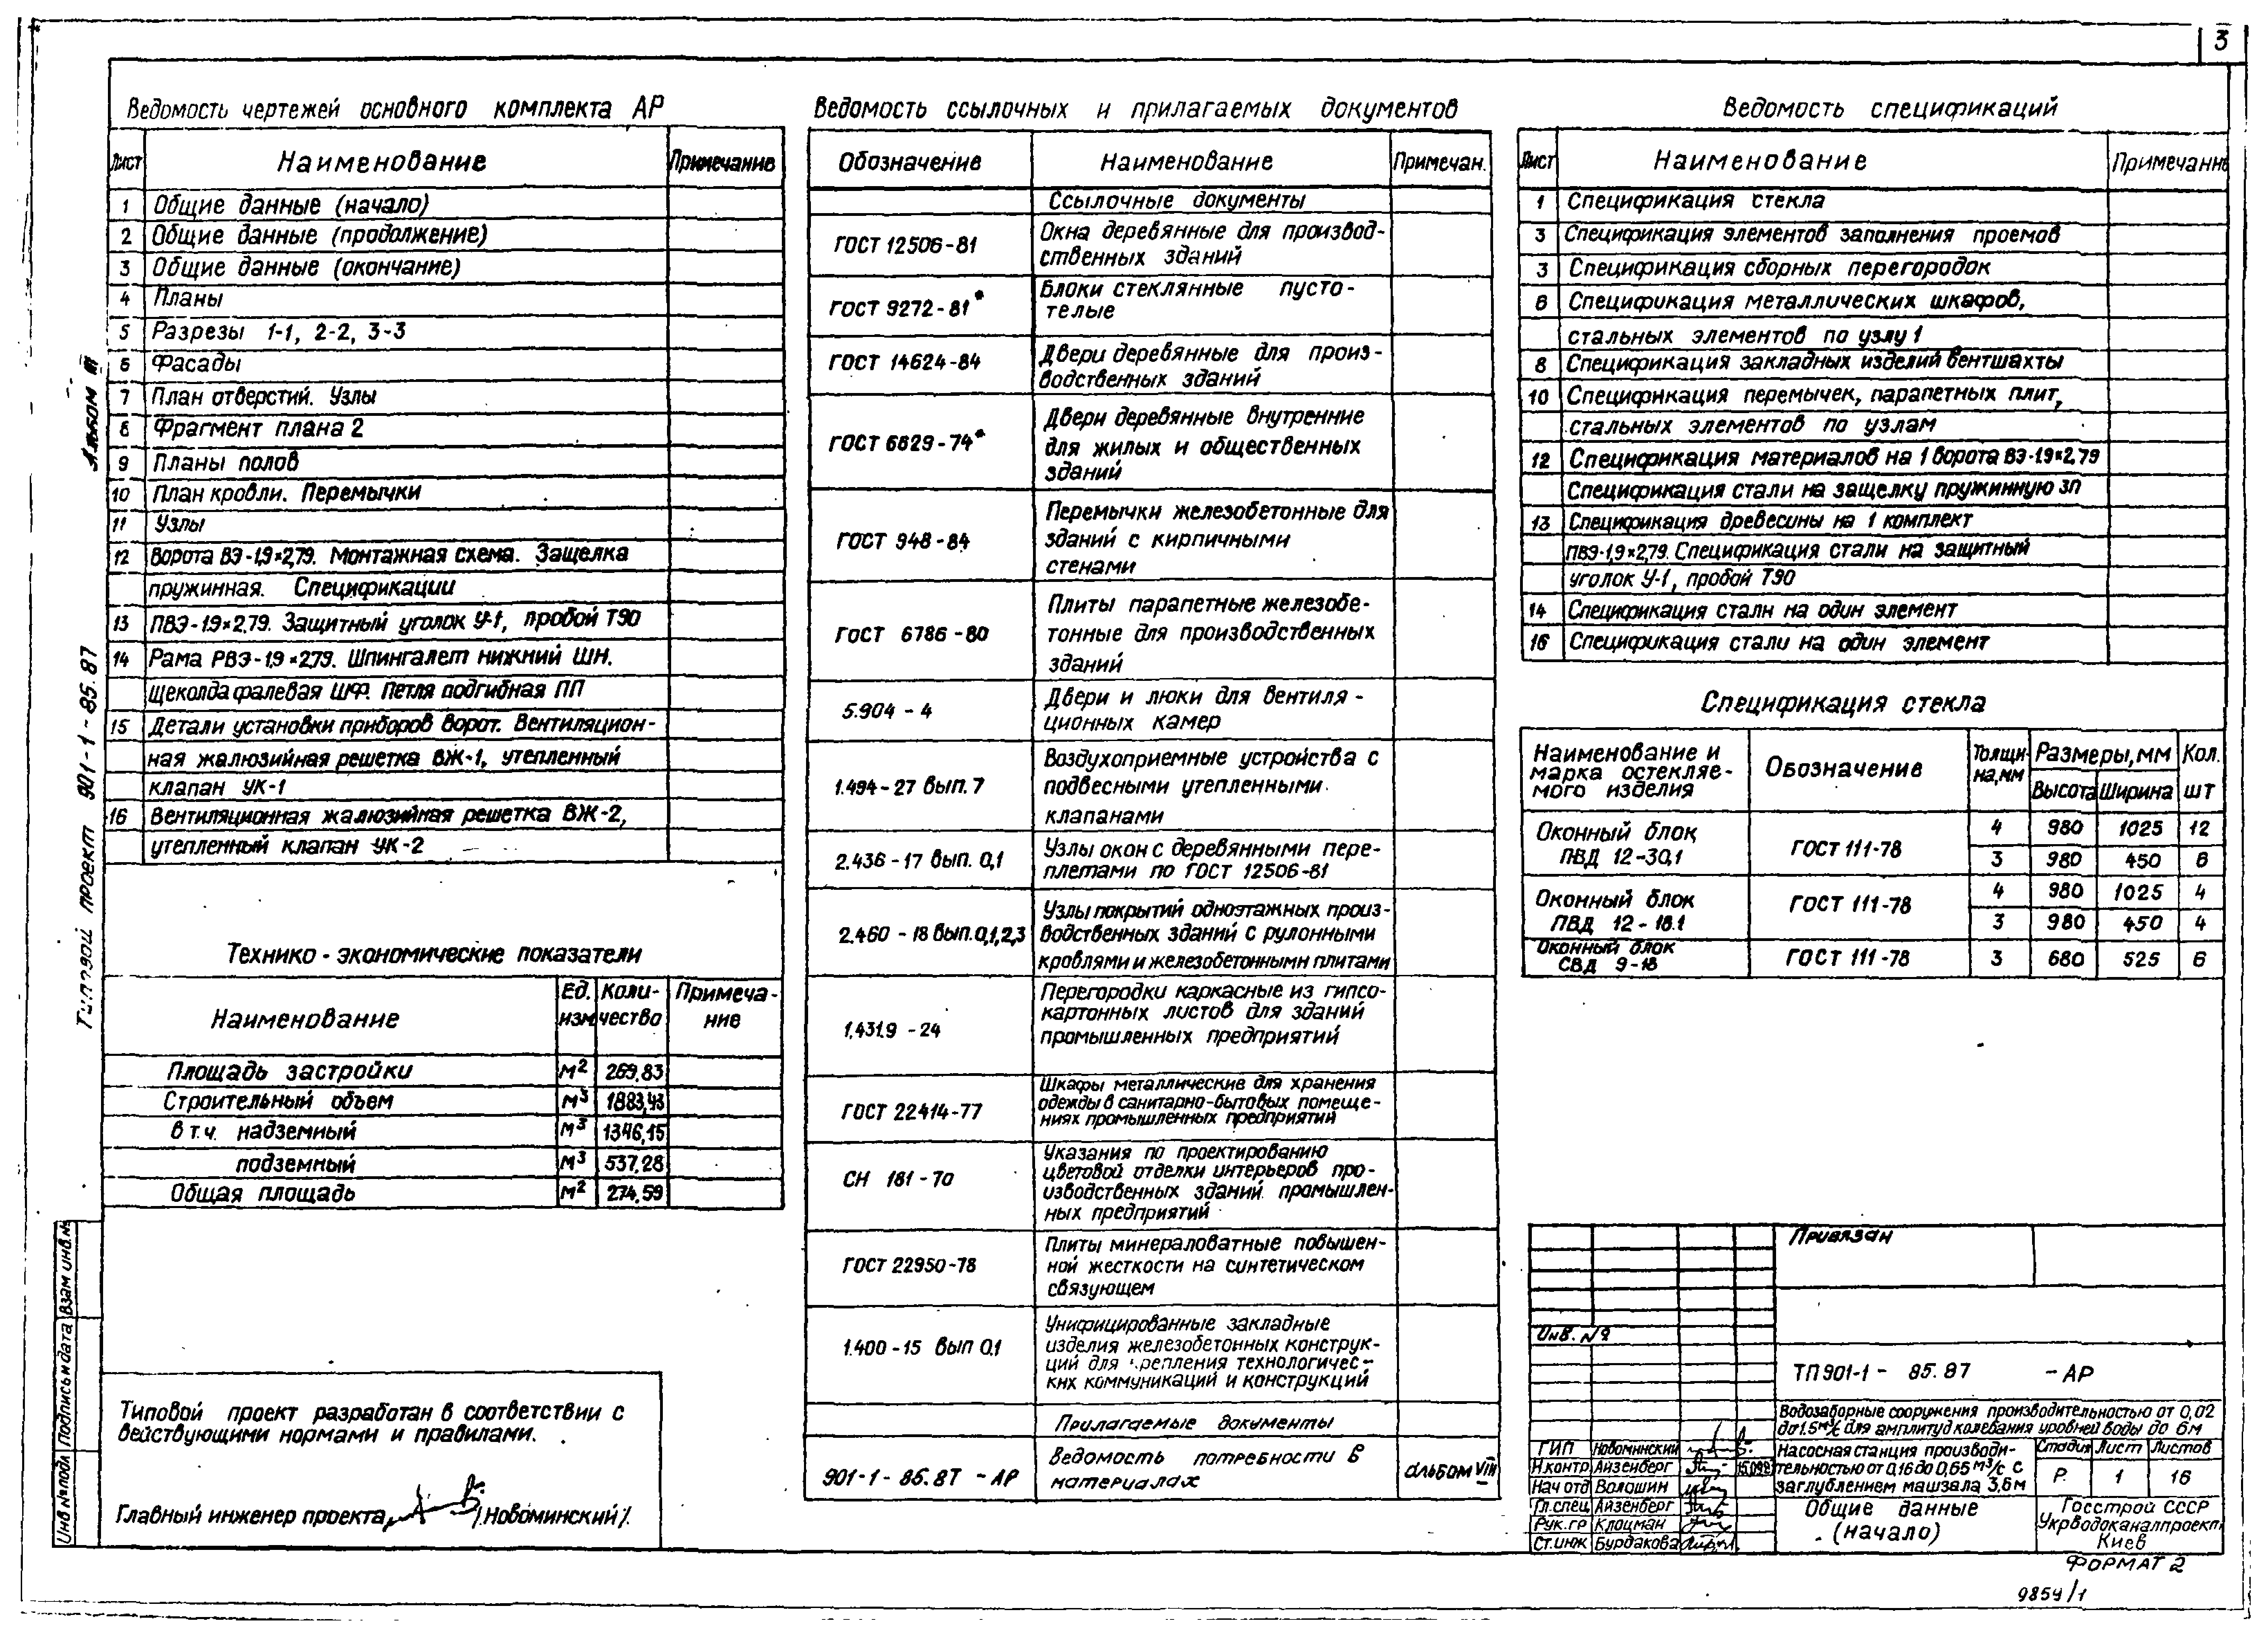 3
Ведомость чертежей основного комплекта АР
Лист Наименование Примечание
1 Общие данные (начало)
2 Общие данные (продолжение)
3 Общие данные (окончание)
4 Планы
5 Разрезы 1-1, 2-2, 3-3
6 Фасады
7 План отверстий. Узлы
8 Фрагмент плана 2
9 Планы полов
10 План кровли. Перемычки
11 Узлы
12 Ворота ВЭ-1,9×2,79. Монтажная схема. Защелка
пружинная. Спецификации
13 ПВЭ-1,9×2,79. Защитный уголок У-1, пробой Т90
14 Рама РВЭ-1,9×2,79. Шпингалет нижний ШН.
Щеколда фалевая ШФ. Петля подгибная ПП
15 Детали установки приборов ворот. Вентиляцион-
ная жалюзийная решетка ВЖ-1, утепленный
клапан УК-1
16 Вентиляционная жалюзийная решетка ВЖ-2,
утепленный клапан УК-2
Технико-экономические показатели
Наименование Ед. изм Коли-чество Примеча-ние
Площадь застройки м² 269,83
Строительный объем м³ 1883,43
в т.ч. надземный м³ 1346,15
подземный м³ 537,28
Общая площадь м² 274,59
Типовой проект разработан в соответствии с
действующими нормами и правилами.
Главный инженер проекта /Новоминский/.
Ведомость ссылочных и прилагаемых документов
Обозначение Наименование Примечан.
Ссылочные документы
ГОСТ 12506-81 Окна деревянные для производ-
ственных зданий
ГОСТ 9272-81* Блоки стеклянные пусто-
телые
ГОСТ 14624-84 Двери деревянные для произ-
водственных зданий
ГОСТ 6629-74* Двери деревянные внутренние
для жилых и общественных
зданий
ГОСТ 948-84 Перемычки железобетонные для
зданий с кирпичными
стенами
ГОСТ 6786-80 Плиты парапетные железобе-
тонные для производственных
зданий
5.904-4 Двери и люки для вентиля-
ционных камер
1.494-27 вып. 7 Воздухоприемные устройства с
подвесными утепленными
клапанами
2.436-17 вып. 0,1 Узлы окон с деревянными пере-
плетами по ГОСТ 12506-81
2.460-18 вып. 0,1,2,3 Узлы покрытий одноэтажных произ-
водственных зданий с рулонными
кровлями и железобетонными плитами
1.431.9-24 Перегородки каркасные из гипсо-
картонных листов для зданий
промышленных предприятий
ГОСТ 22414-77 Шкафы металлические для хранения
одежды в санитарно-бытовых помеще-
ниях промышленных предприятий
СН 181-70 Указания по проектированию
цветовой отделки интерьеров про-
изводственных зданий промышлен-
ных предприятий
ГОСТ 22950-78 Плиты минераловатные повышен-
ной жесткости на синтетическом
связующем
1.400-15 вып 0,1 Унифицированные закладные
изделия железобетонных конструк-
ций для крепления технологичес-
ких коммуникаций и конструкций
Прилагаемые документы
901-1-85.87-АР Ведомость потребности в
материалах альбом VIII
Ведомость спецификаций
Лист Наименование Примечание
1 Спецификация стекла
3 Спецификация элементов заполнения проемов
3 Спецификация сборных перегородок
6 Спецификация металлических шкафов,
стальных элементов по узлу 1
8 Спецификация закладных изделий вентшахты
10 Спецификация перемычек, парапетных плит,
стальных элементов по узлам
12 Спецификация материалов на 1 ворота ВЭ-1.9×2,79
Спецификация стали на защелку пружинную ЗП
13 Спецификация древесины на 1 комплект
ПВЭ-1,9×2,79. Спецификация стали на защитный
уголок У-1, пробой Т90
14 Спецификация стали на один элемент
16 Спецификация стали на один элемент
Спецификация стекла
Наименование и марка остекляе-мого изделия Обозначение Толщи-на, мм Размеры, мм Кол. шт
Высота Ширина
Оконный блок ПВД 12-30,1 ГОСТ 111-78 4 980 1025 12
3 980 450 6
Оконный блок ПВД 12-18.1 ГОСТ 111-78 4 980 1025 4
3 980 450 4
Оконный блок СВД 9-18 ГОСТ 111-78 3 680 525 6
Привязан
Инв. №
ТП 901-1-85.87 -АР
Водозаборные сооружения производительностью от 0,02
до 1.5 м³/с для амплитуд колебания уровней воды до 6м
ГИП Новоминский
Н.контр Айзенберг
Нач отд Волошин
Гл.спец Айзенберг
Рук.гр Клоцман
Ст.инж Бурдакова
Насосная станция производи-
тельностью от 0,16 до 0,65 м³/с с
заглублением машзала 3,6м
Стадия Лист Листов
Р 1 16
Общие данные
(начало)
Госстрой СССР
Укрводоканалпроект
Киев
ФОРМАТ 2
9854/1
Альбом III
Типовой проект 901-1-85.87
Взам инв.№
Подпись и дата
Инв № подл